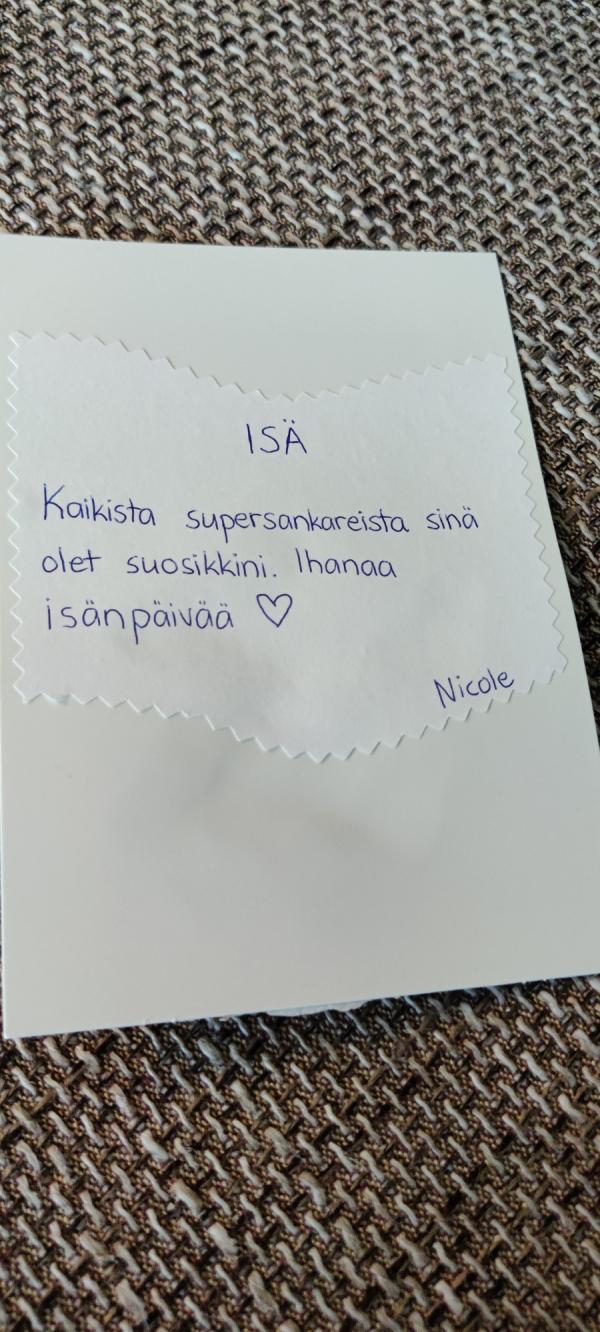 ISÄ
Kaikista supersankareista sinä
olet suosikkini. Ihanaa
isänpäivää ♡
Nicole